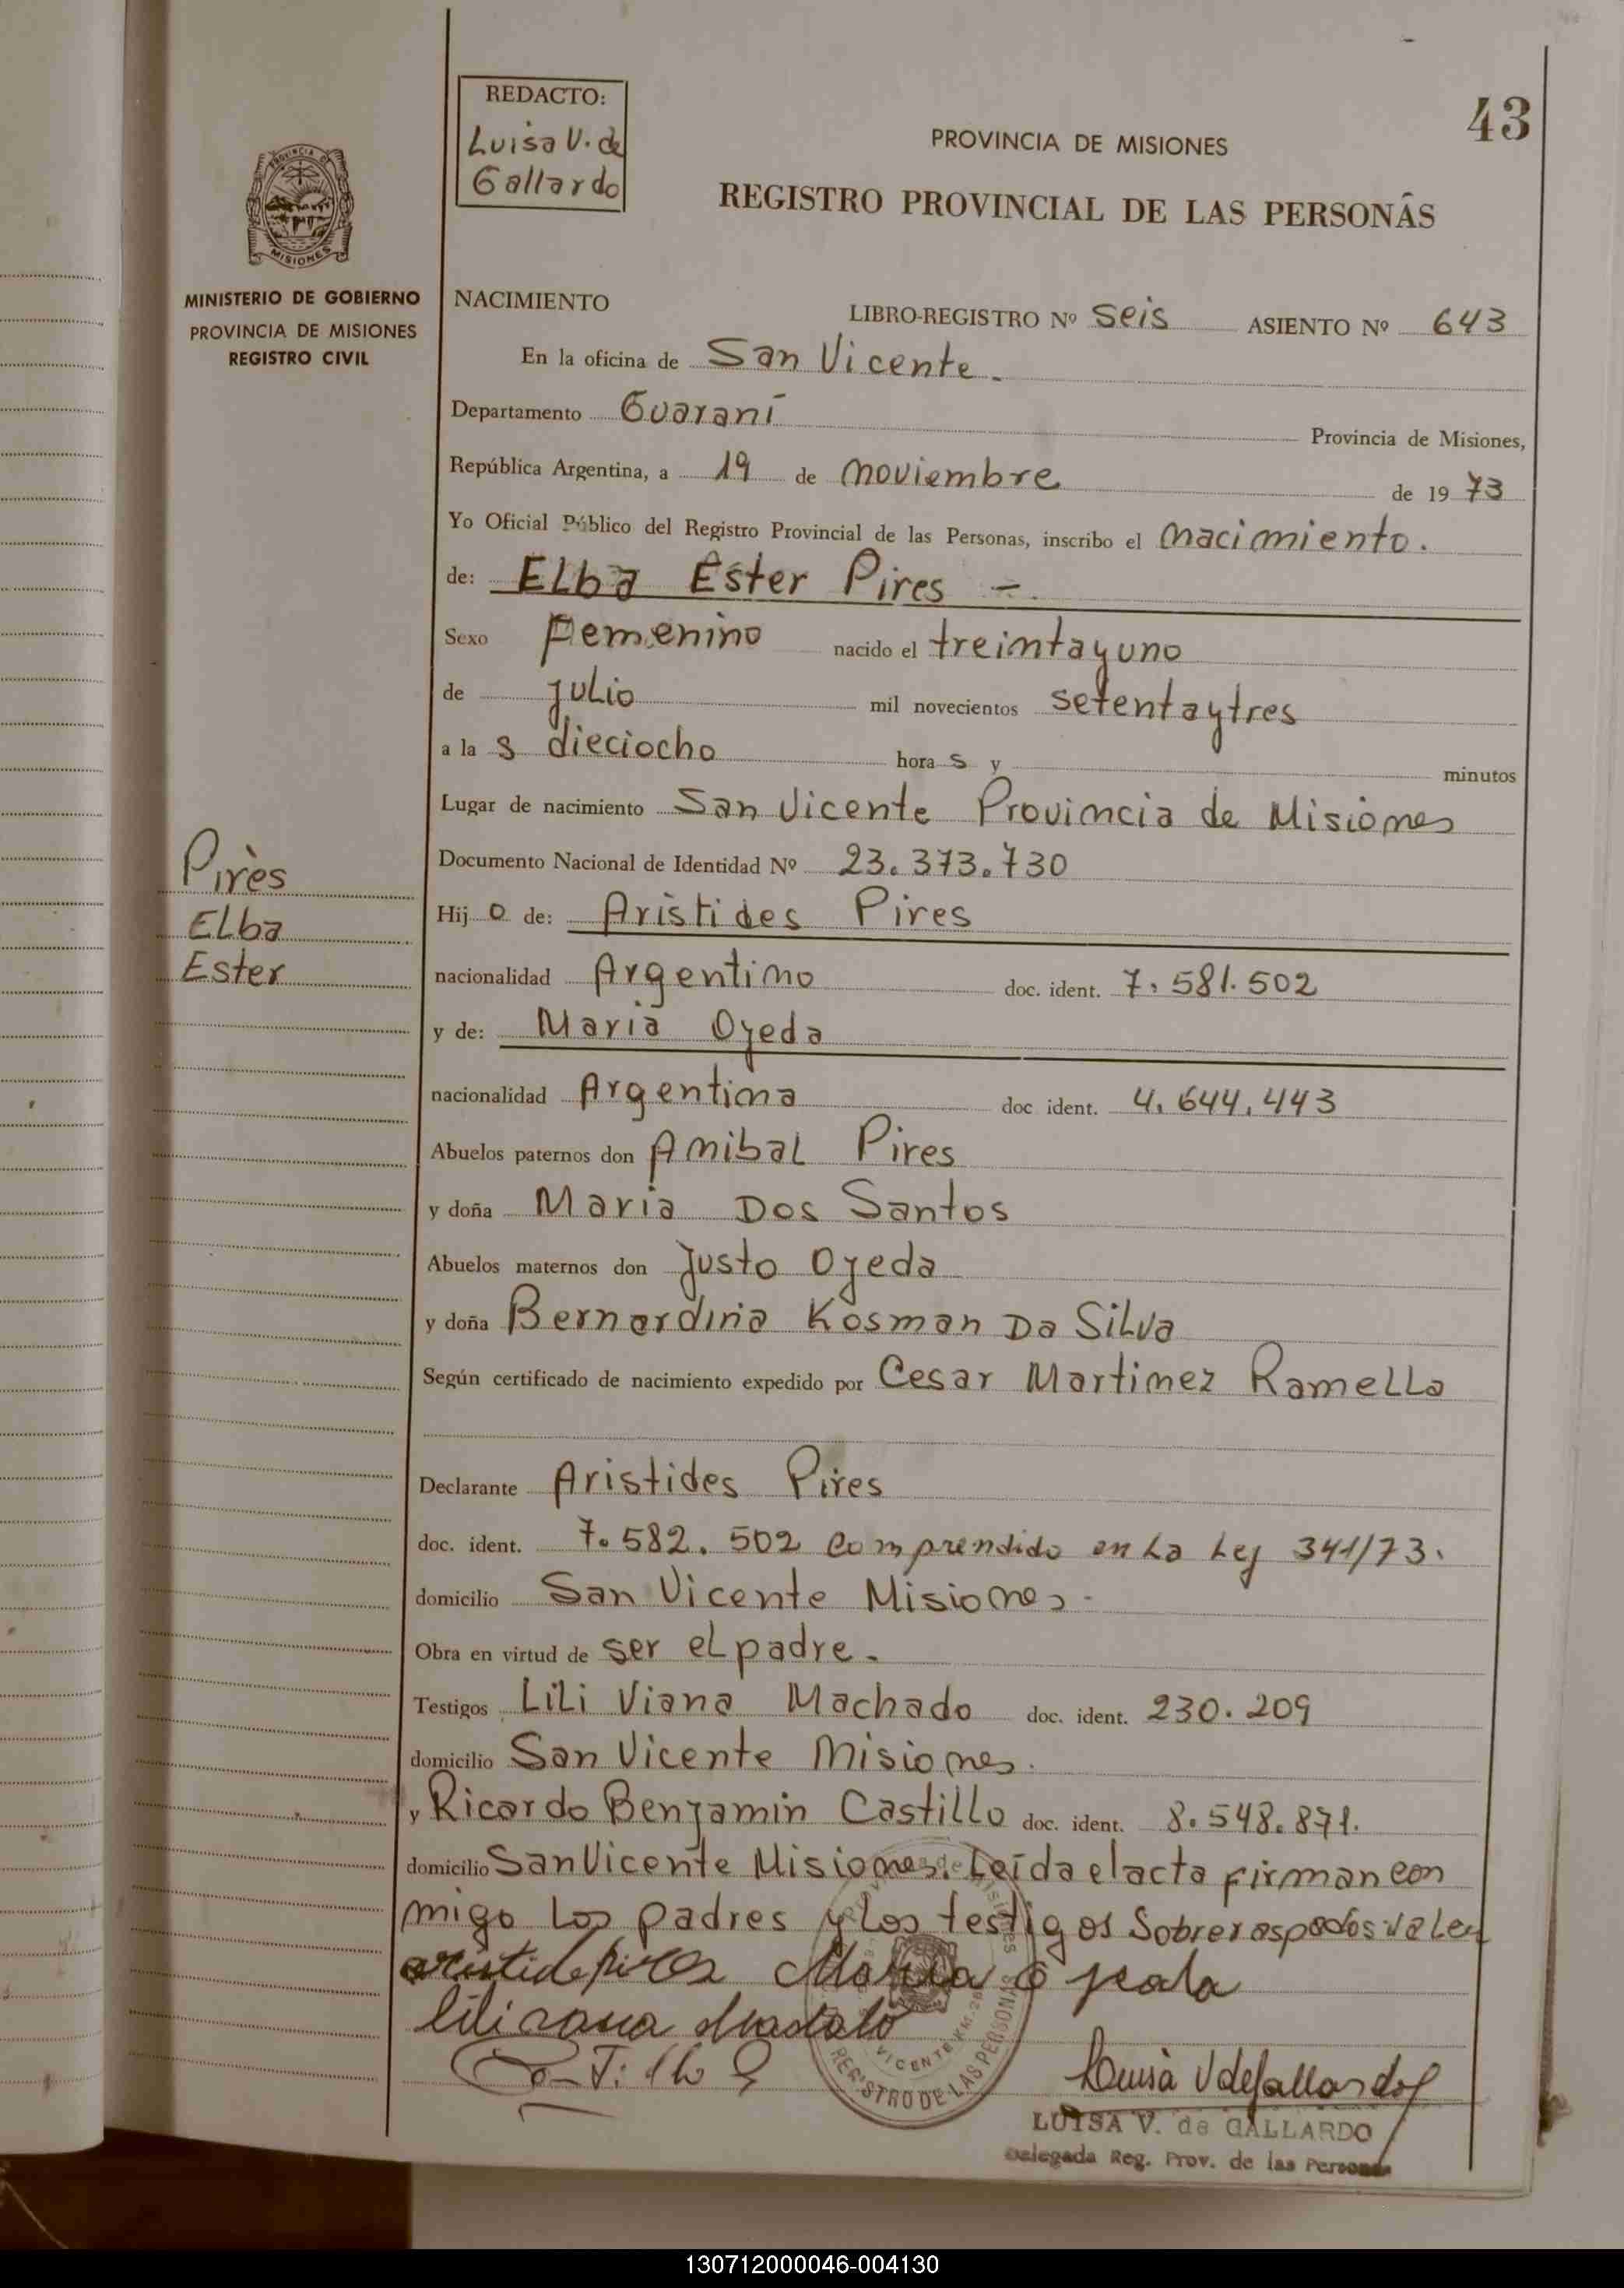 43
REDACTO:
Luisa V. de
Gallardo
PROVINCIA DE MISIONES
REGISTRO PROVINCIAL DE LAS PERSONAS
PROVINCIA DE
MISIONES
MINISTERIO DE GOBIERNO
PROVINCIA DE MISIONES
REGISTRO CIVIL
NACIMIENTO LIBRO-REGISTRO Nº Seis ASIENTO Nº 643
En la oficina de San Vicente.
Departamento Guaraní Provincia de Misiones,
República Argentina, a 19 de noviembre de 1973
Yo Oficial Público del Registro Provincial de las Personas, inscribo el nacimiento.
de: Elba Ester Pires
Sexo Femenino nacido el treintayuno
de julio mil novecientos setentaytres
a la s dieciocho hora s y minutos
Lugar de nacimiento San Vicente Provincia de Misiones
Documento Nacional de Identidad Nº 23.373.730
Pires
Elba
Ester
Hij o de: Aristides Pires
nacionalidad Argentino doc. ident. 7.581.502
y de: Maria Ojeda
nacionalidad Argentina doc ident. 4.644.443
Abuelos paternos don Anibal Pires
y doña Maria Dos Santos
Abuelos maternos don Justo Ojeda
y doña Bernardina Kosman Da Silva
Según certificado de nacimiento expedido por Cesar Martinez Ramella
Declarante Aristides Pires
doc. ident. 7.582.502 comprendido en la Ley 341/73.
domicilio San Vicente Misiones.
Obra en virtud de ser el padre.
Testigos Lili Viana Machado doc. ident. 230.209
domicilio San Vicente Misiones.
y Ricardo Benjamin Castillo doc. ident. 8.548.871.
domicilio San Vicente Misiones. Leída el acta firman con
migo los padres y los testigos Sobreraspados: valen
Maria
REGISTRO DE LAS PERSONAS
VICENTE KM.
Luisa V de Gallardo
LUISA V. de GALLARDO
Delegada Reg. Prov. de las Personas
130712000046-004130